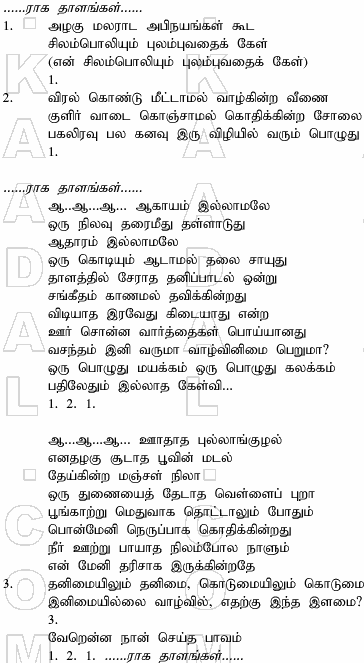 ......ராக தாளங்கள்......
1. அழகு மலராட அபிநயங்கள் கூட
சிலம்பொலியும் புலம்புவதைக் கேள்
(என் சிலம்பொலியும் புலம்புவதைக் கேள்)
1.
2. விரல் கொண்டு மீட்டாமல் வாழ்கின்ற வீணை
குளிர் வாடை கொஞ்சாமல் கொதிக்கின்ற சோலை
பகலிரவு பல கனவு இரு விழியில் வரும் பொழுது
1.
......ராக தாளங்கள்......
ஆ...ஆ...ஆ... ஆகாயம் இல்லாமலே
ஒரு நிலவு தரைமீது தள்ளாடுது
ஆதாரம் இல்லாமலே
ஒரு கொடியும் ஆடாமல் தலை சாயுது
தாளத்தில் சேராத தனிப்பாடல் ஒன்று
சங்கீதம் காணமல் தவிக்கின்றது
விடியாத இரவேது கிடையாது என்ற
ஊர் சொன்ன வார்த்தைகள் பொய்யானது
வசந்தம் இனி வருமா வாழ்வினிமை பெறுமா?
ஒரு பொழுது மயக்கம் ஒரு பொழுது கலக்கம்
பதிலேதும் இல்லாத கேள்வி...
1. 2. 1.
ஆ...ஆ...ஆ... ஊதாத புல்லாங்குழல்
எனதழகு சூடாத பூவின் மடல்
தேய்கின்ற மஞ்சள் நிலா
ஒரு துணையைத் தேடாத வெள்ளைப் புறா
பூங்காற்று மெதுவாக தொட்டாலும் போதும்
பொன்மேனி நெருப்பாக கொதிக்கின்றது
நீர் ஊற்று பாயாத நிலம்போல நாளும்
என் மேனி தரிசாக இருக்கின்றதே
3. தனிமையிலும் தனிமை, கொடுமையிலும் கொடுமை
இனிமையில்லை வாழ்வில், எதற்கு இந்த இளமை?
3.
வேறென்ன நான் செய்த பாவம்
1. 2. 1. ......ராக தாளங்கள்......
KAADAL
COM
KAADAL
COM